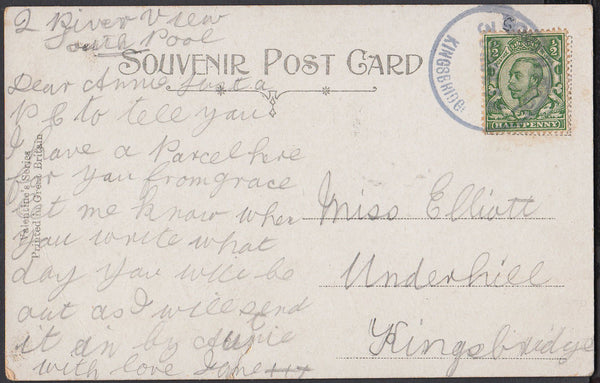 2 River View
South Pool
SOUVENIR POST CARD
Dear Annie Just a
PC to tell you
I have a Parcel here
for you from grace
let me know when
you write what
day you will be
out as I will send
it in by
with love Jane
Valentine's Series
Printed in Great Britain
KINGSBRIDGE
HALF PENNY
Miss Elliott
Underhill
Kingsbridge